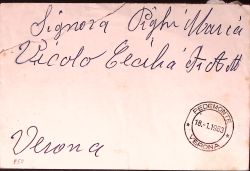 Signora Pighi Maria
Vicolo Cecilia
Verona
PEDEMONTE
18.-1.1963
* VERONA *